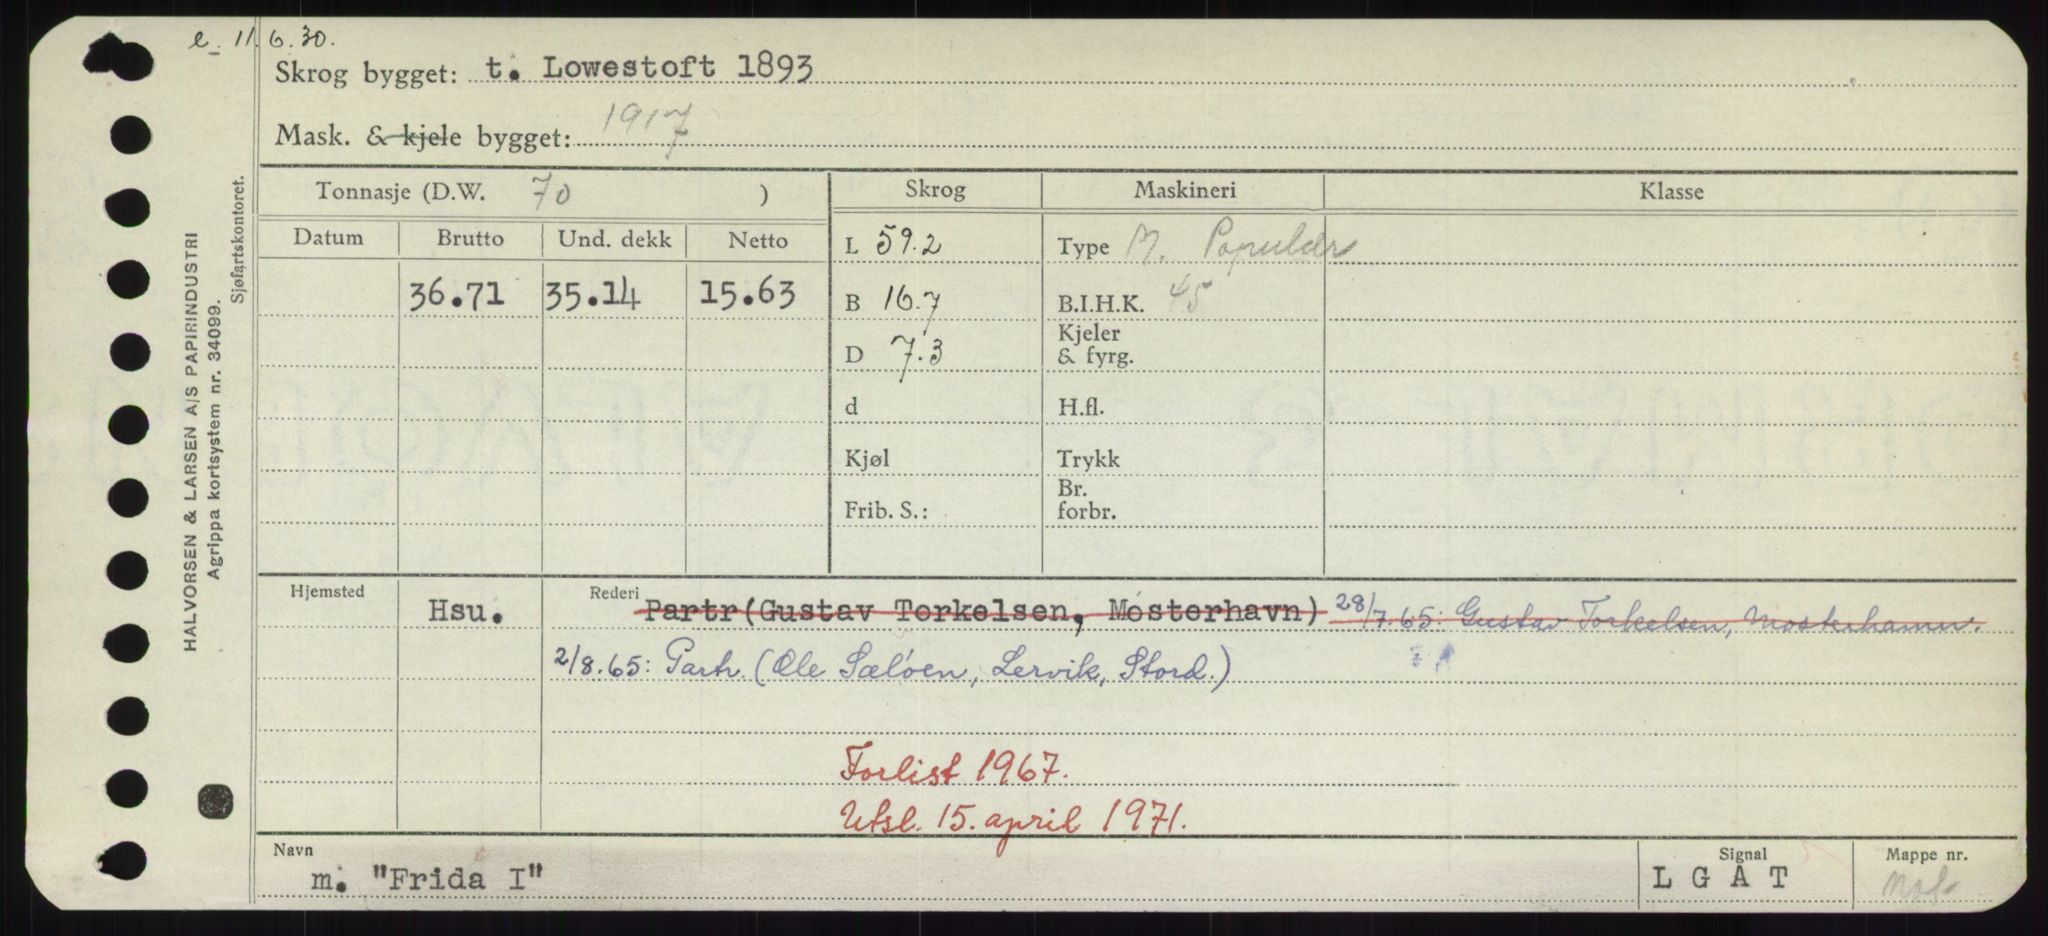 e. 11.6.30.
Skrog bygget: t. Lowestoft 1893
Mask. & kjele bygget: 1917
Tonnasje (D.W. 70 ) Skrog Maskineri Klasse
Datum Brutto Und. dekk Netto L 59.2 Type M. Populær
36.71 35.14 15.63 B 16.7 B.I.H.K. 45
D 7.3 Kjeler & fyrg.
d H.fl.
Kjøl Trykk
Frib. S.: Br. forbr.
Hjemsted Hsu. Rederi Partr(Gustav Torkelsen, Mosterhavn) 28/7.65: Gustav Torkelsen, Mosterhamn.
2/8.65: Partr. (Ole Sæløen, Lervik, Stord.)
Forlist 1967.
Utsl. 15. april 1971.
Navn Signal Mappe nr.
m. "Frida I" L G A T
HALVORSEN & LARSEN A/S PAPIRINDUSTRI
Agrippa kortsystem nr. 34099.
Sjøfartskontoret.